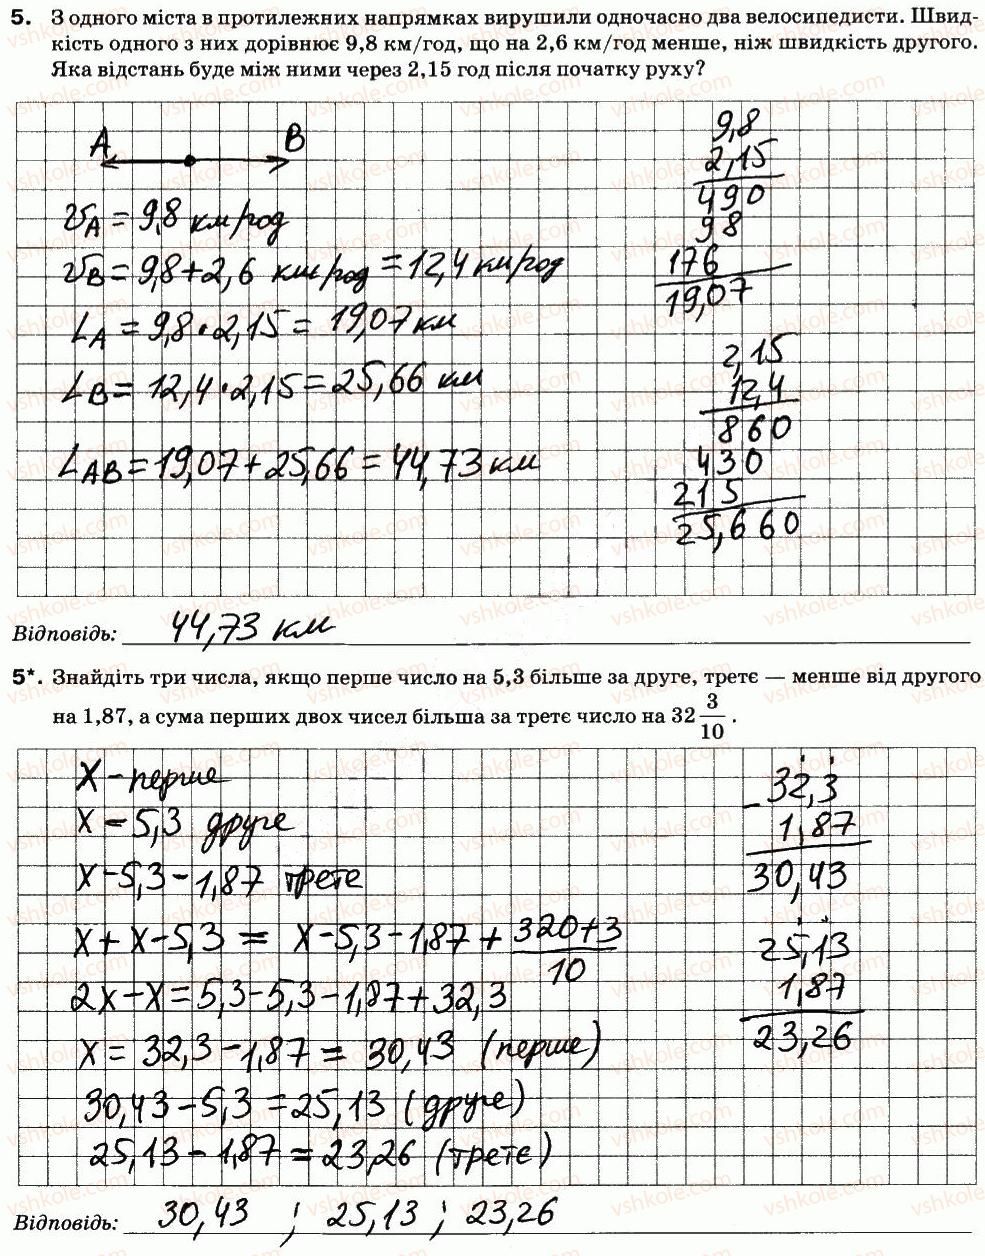 5. З одного міста в протилежних напрямках вирушили одночасно два велосипедисти. Швид-
кість одного з них дорівнює 9,8 км/год, що на 2,6 км/год менше, ніж швидкість другого.
Яка відстань буде між ними через 2,15 год після початку руху?
A B
υA = 9,8 км/год
υB = 9,8+2,6 км/год = 12,4 км/год
LA = 9,8 · 2,15 = 19,07 км
LB = 12,4 · 2,15 = 25,66 км
LAB = 19,07 + 25,66 = 44,73 км
9,8
2,15
490
98
176
19,07
2,15
12,4
860
430
215
25,660
Відповідь: 44,73 км
5*. Знайдіть три числа, якщо перше число на 5,3 більше за друге, третє — менше від другого
на 1,87, а сума перших двох чисел більша за третє число на 32 3/10 .
X – перше
X – 5,3 друге
X – 5,3 – 1,87 третє
X + X – 5,3 = X – 5,3 – 1,87 + 320+3/10
2X – X = 5,3 – 5,3 – 1,87 + 32,3
X = 32,3 – 1,87 = 30,43 (перше)
30,43 – 5,3 = 25,13 (друге)
25,13 – 1,87 = 23,26 (третє)
32,3
– 1,87
30,43
25,13
1,87
23,26
Відповідь: 30,43 ; 25,13 ; 23,26
vshkole.com